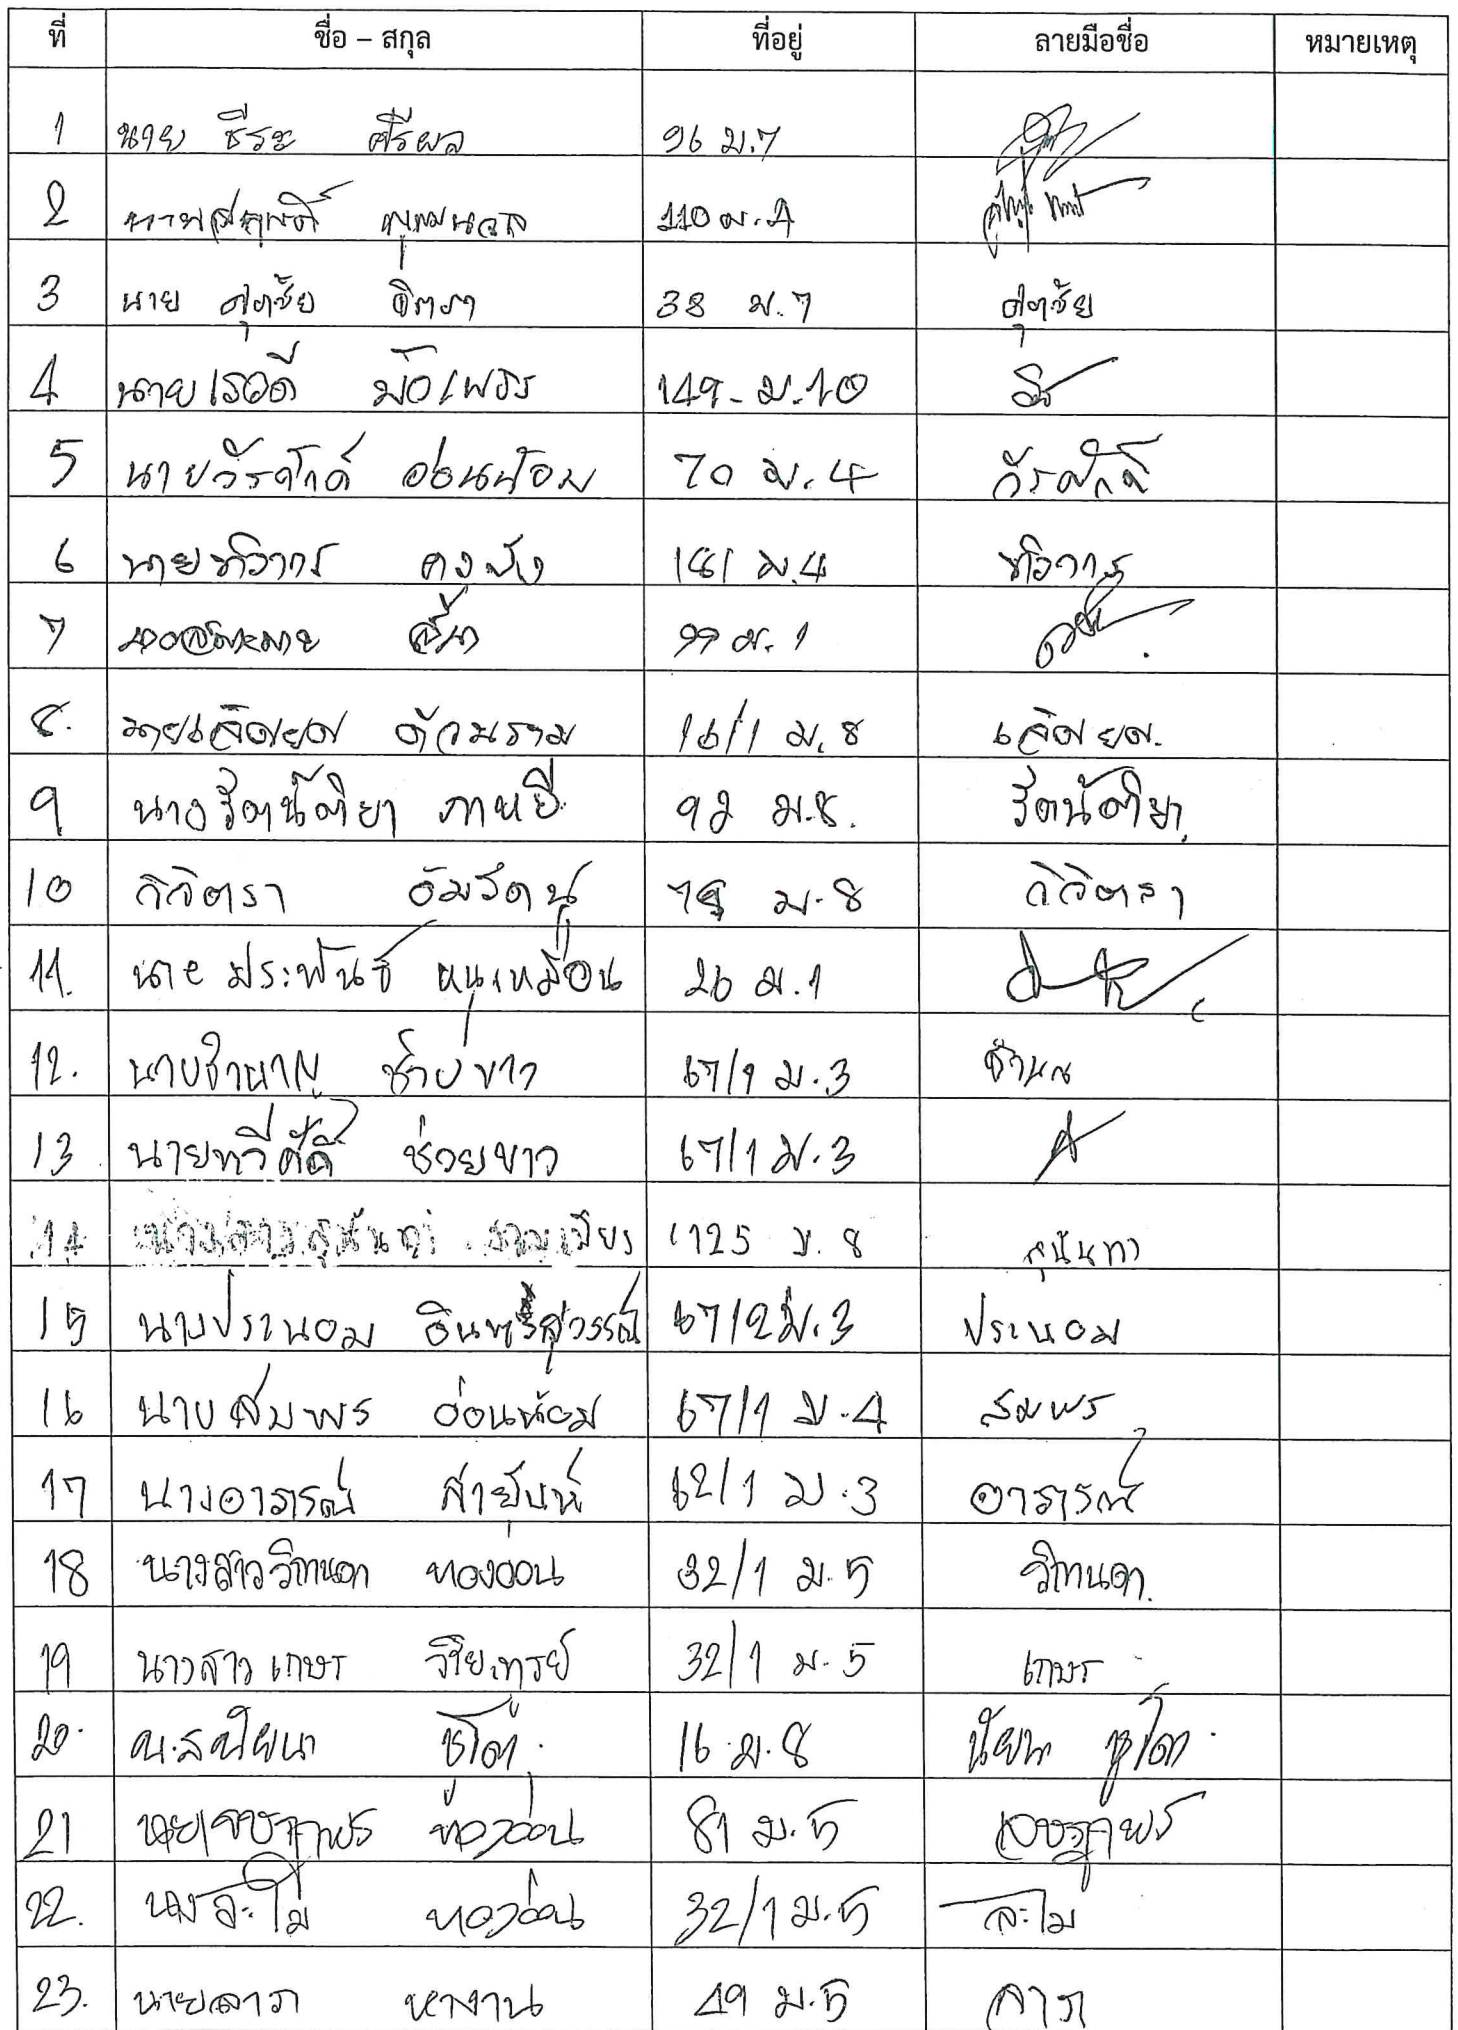 ที่ ชื่อ – สกุล ที่อยู่ ลายมือชื่อ หมายเหตุ
1 นาย ธีระ ศรีผล 96 ม.7
2 110 ม.4
3 นาย ศุภชัย จิตรา 38 ม.7 ศุภชัย
4 นาย 149 - ม.10
5 นายวีรศักดิ์ อ่อนน้อม 70 ม.4 วีรศักดิ์
6 นายทิวากร คงสัง 181 ม.4 ทิวากร
7 99 ม.1
8. นายเลิศยศ ด้วนราม 16/1 ม.8 เลิศยศ.
9 นางรัตน์ติยา กาหยี 92 ม.8. รัตน์ติยา
10 วิจิตรา อัมรัตน์ ม.8 วิจิตรา
11. นาย ประพันธ์ หนูเหมือน 26 ม.1
12. นายชำนาญ ช่วยขาว 67/1 ม.3
13 นายทวีศักดิ์ ช่วยขาว 67/1 ม.3
14 นางสาวสุนันทา 125 ม.8 สุนันทา
15 นางประนอม อินทร์สุวรรณ์ 67/2 ม.3 ประนอม
16 นายสมพร อ่อนน้อม 67/1 ม.4 สมพร
17 นางอาภรณ์ สายัณห์ 62/1 ม.3 อาภรณ์
18 นางสาววิภานดา ทองอ่อน 32/1 ม.5 วิภานดา.
19 นางสาว เกษร วิชัยทรย์ 32/1 ม.5 เกษร
20. น.ส นัยนา ชูโต. 16 ม.8 นัยนา ชูโต.
21 นาย ทองอ่อน 81 ม.5
22. นางละไม ทองอ่อน 32/1 ม.5 ละไม
23. นาย หางาน 49 ม.5